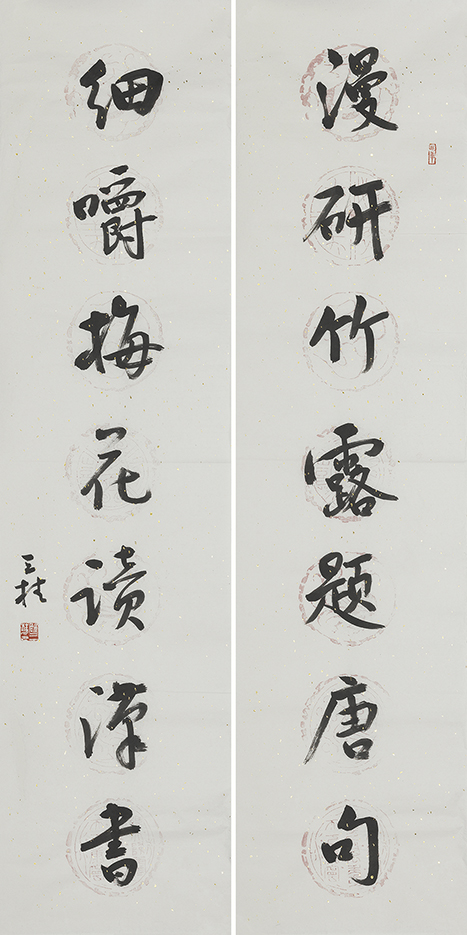 漫研竹露題唐句
细嚼梅花读漢書
三柱